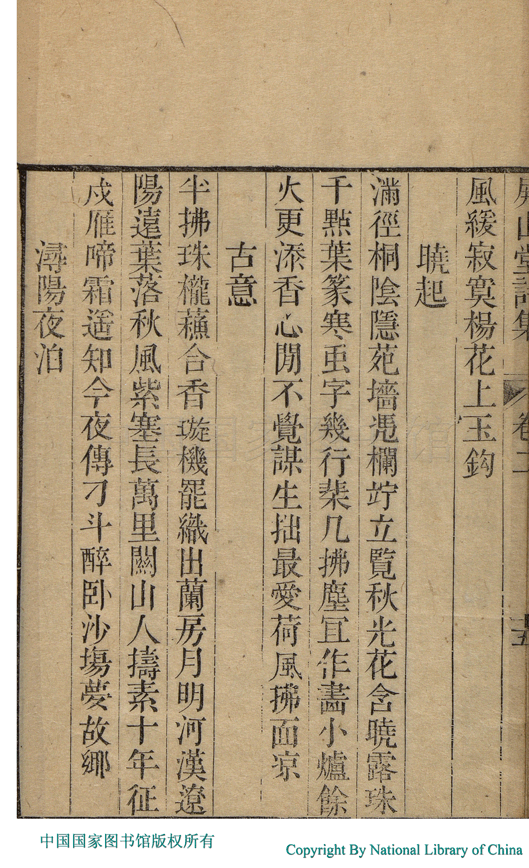 屏山堂詩集 卷二 十五
風緩寂寞楊花上玉鈎
曉起
滿徑桐陰隱苑墻凴欄竚立覽秋光花含曉露珠
千點葉篆寒虫字幾行棐几拂塵冝作畵小爐餘
火更添香心閒不覺謀生拙最愛荷風拂面凉
古意
半拂珠櫳蘓合香璇機罷織出蘭房月明河漢遼
陽遠葉落秋風紫塞長萬里關山人擣素十年征
戍雁啼霜遥知今夜傳刁斗醉卧沙塲夢故鄉
潯陽夜泊
中国国家图书馆版权所有
Copyright By National Library of China